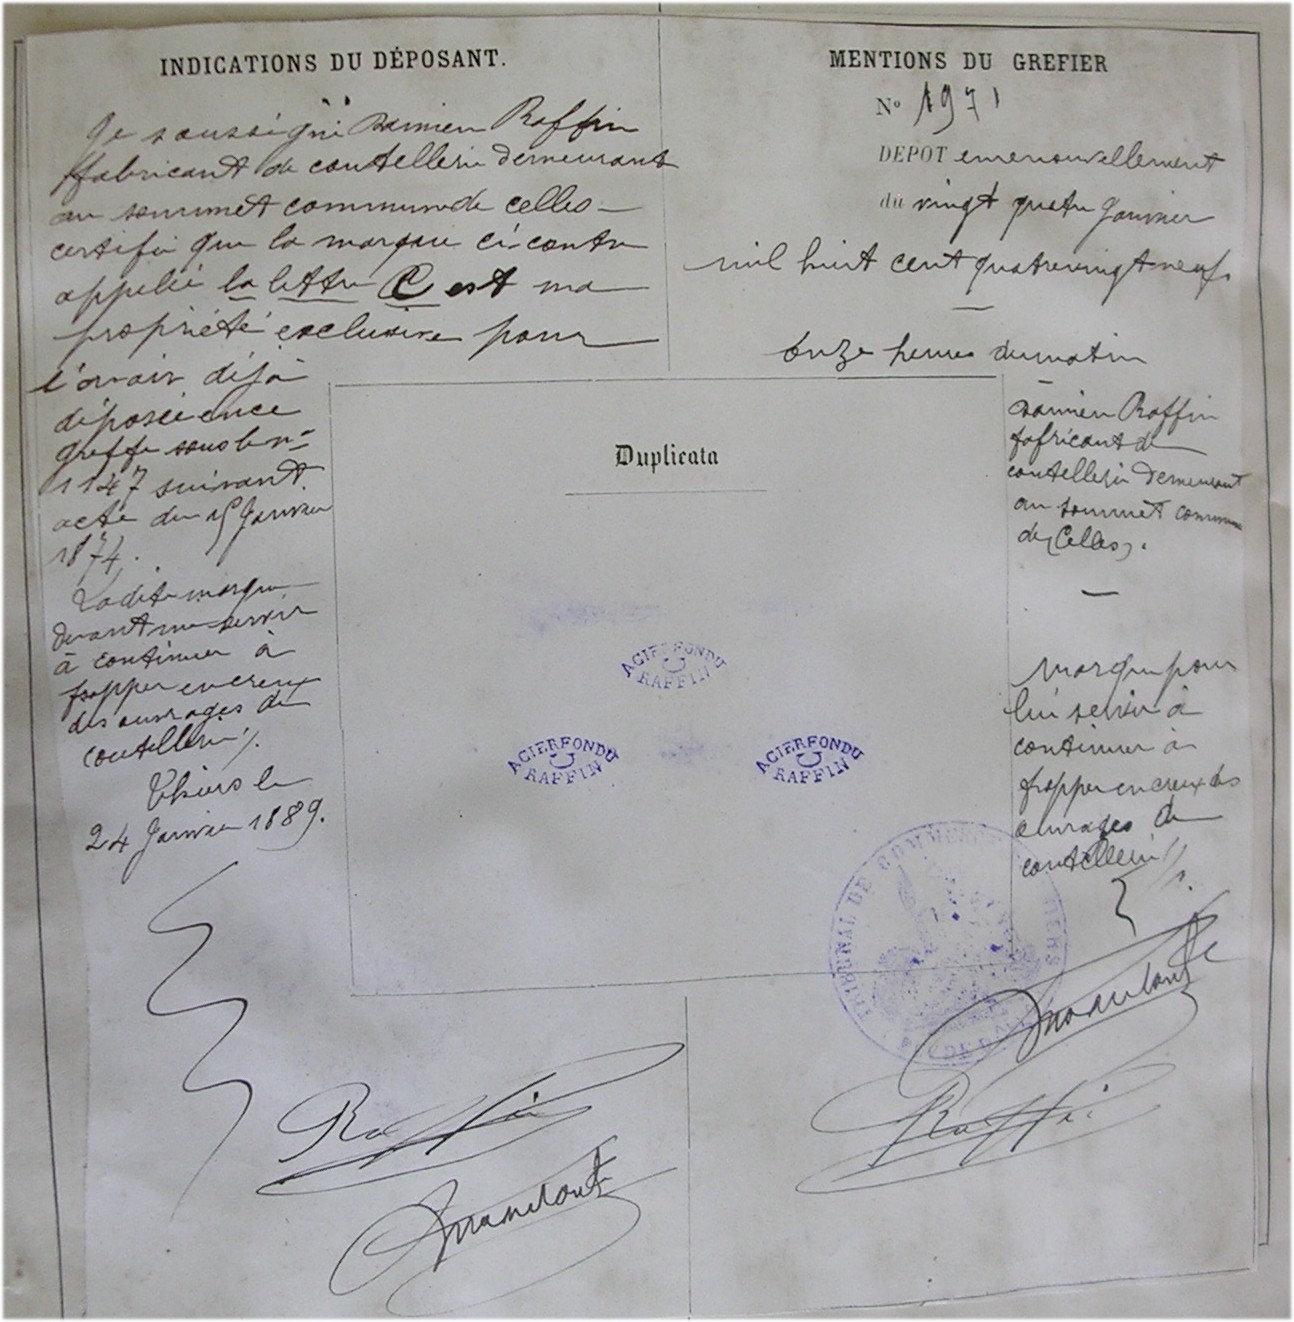 INDICATIONS DU DÉPOSANT.
Je soussigné Damien Raffin
fabricant de coutellerie demeurant
au sommet commune de Celles
certifie que la marque ci-contre
appelée la lettre C est ma
propriété exclusive pour
l'avoir déjà
déposée en ce
greffe sous le n°
1147 suivant
acte du 15 Janvier
1874.
La dite marque
devant me servir
à continuer à
frapper en creux
des ouvrages de
coutellerie ./.
Thiers le
24 Janvier 1889.
Raffin
MENTIONS DU GREFIER
N° 1971
DEPOT en renouvellement
du vingt quatre Janvier
mil huit cent quatre vingt neuf
onze heures du matin
Damien Raffin
fabricant de
coutellerie demeurant
au sommet commune
de Celles.
Marque pour
lui servir à
continuer à
frapper en creux des
ouvrages de
coutellerie ./.
Raffin
Duplicata
ACIER FONDU
C
RAFFIN
ACIER FONDU
C
RAFFIN
ACIER FONDU
C
RAFFIN
TRIBUNAL DE COMMERCE THIERS